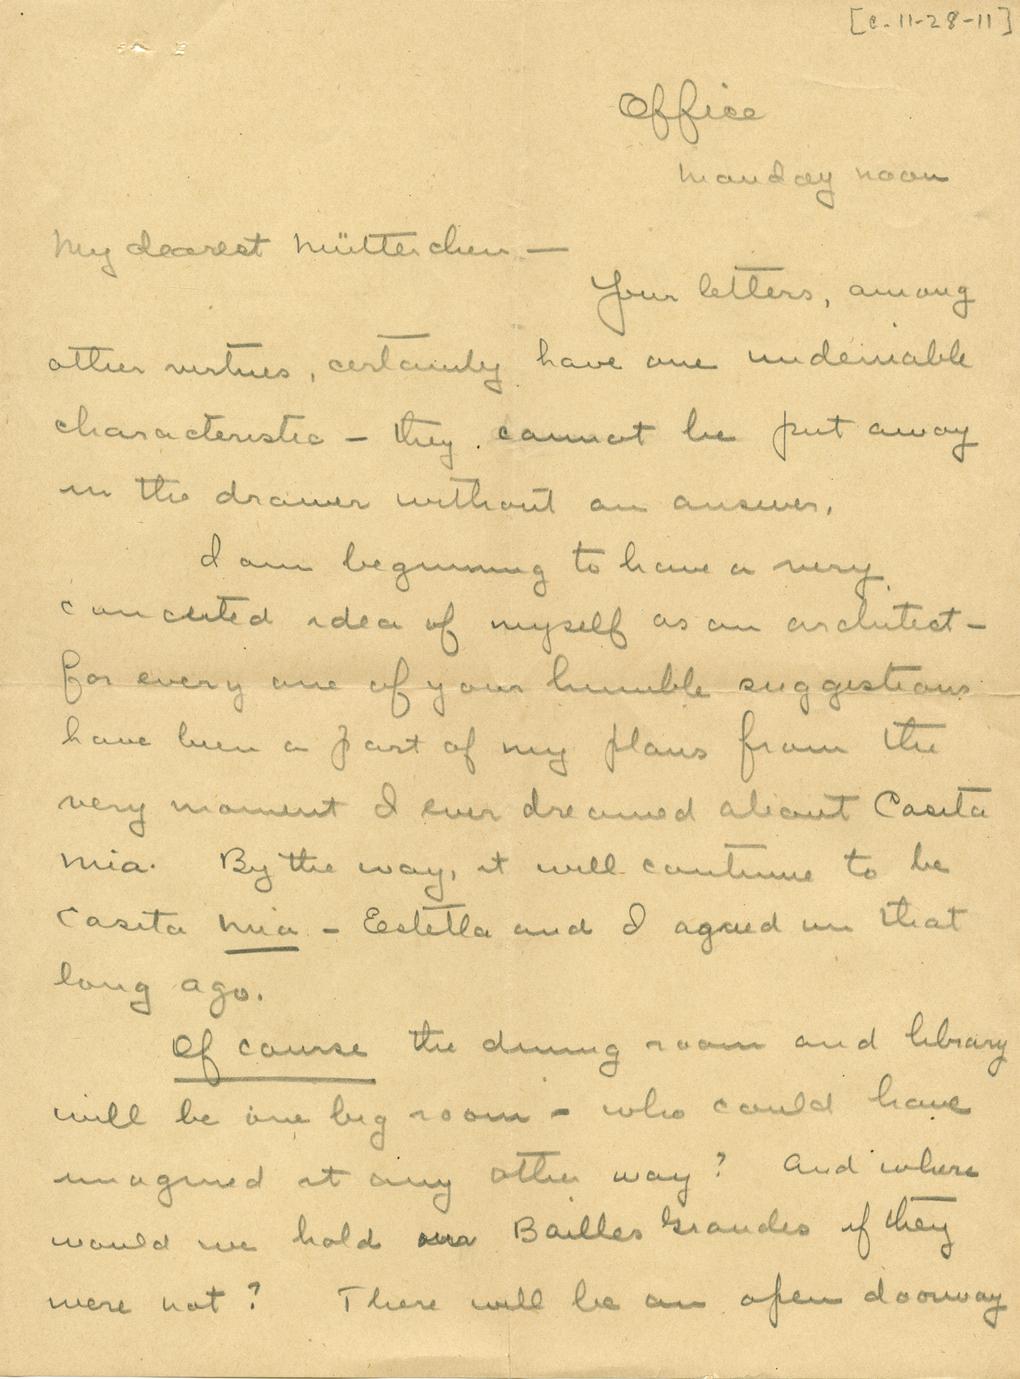 [c. 11-28-11]
Office
Monday noon
My dearest Mütterchen —
Your letters, among
other virtues, certainly have one undeniable
characteristic – they cannot be put away
in the drawer without an answer.
I am beginning to have a very
conceited idea of myself as an architect –
for every one of your humble suggestions
have been a part of my plans from the
very moment I ever dreamed about Casita
Mia. By the way, it will continue to be
Casita Mia – Estella and I agreed on that
long ago.
Of course the dining room and library
will be one big room – who could have
imagined it any other way? And where
would we hold our Bailles Grandes if they
were not? There will be an open doorway